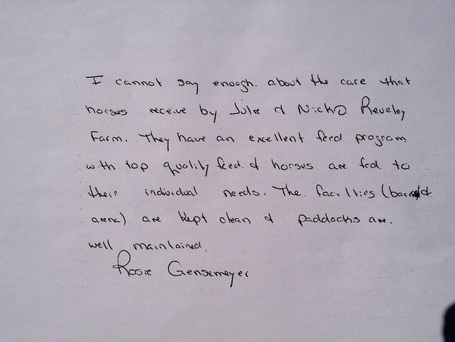 I cannot say enough about the care that
horses receive by Julie & Nick @ Reveley
Farm. They have an excellent feed program
with top quality feed & horses are fed to
their individual needs. The facilities (barn &
arena) are kept clean & paddocks are
well maintained.
Rosie Gensemeyer